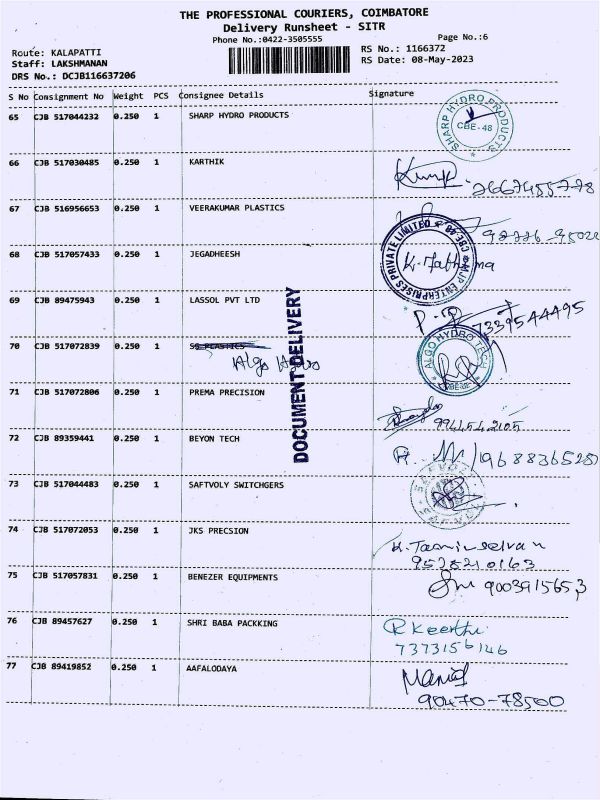 THE PROFESSIONAL COURIERS, COIMBATORE
Delivery Runsheet - SITR
Phone No.:0422-3505555
Page No.:6
Route: KALAPATTI
RS No.: 1166372
Staff: LAKSHMANAN
RS Date: 08-May-2023
DRS No.: DCJB116637206
S No Consignment No Weight PCS Consignee Details Signature
65 CJB 517044232 0.250 1 SHARP HYDRO PRODUCTS
SHARP HYDRO PRODUCTS
CBE-48
66 CJB 517030485 0.250 1 KARTHIK
67 CJB 516956653 0.250 1 VEERAKUMAR PLASTICS
68 CJB 517057433 0.250 1 JEGADHEESH
ENTERPRISES PRIVATE LIMITED
69 CJB 89475943 0.250 1 LASSOL PVT LTD
7339544495
70 CJB 517072839 0.250 1 SG PLASTICS
Algo Hydro
ALGO HYDRO TECH
DOCUMENT DELIVERY
71 CJB 517072806 0.250 1 PREMA PRECISION
72 CJB 89359441 0.250 1 BEYON TECH
73 CJB 517044483 0.250 1 SAFTVOLY SWITCHGERS
74 CJB 517072053 0.250 1 JKS PRECSION
K. Tamilselvan
9528210163
75 CJB 517057831 0.250 1 BENEZER EQUIPMENTS
9003915653
76 CJB 89457627 0.250 1 SHRI BABA PACKKING
R Keerthi
7373156146
77 CJB 89419852 0.250 1 AAFALODAYA
90470-78500